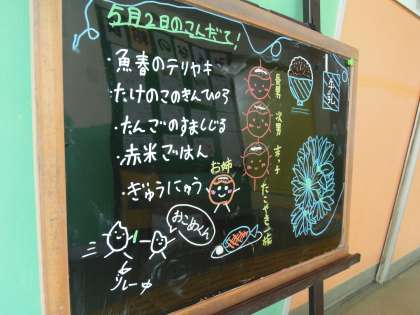 5月2日のこんだて!
・魚春のテリヤキ
・たけのこのきんぴら
・たんごのすましじる
・赤米ごはん
・ぎゅうにゅう
お姉
長男
次男
末っ子
たこやき一族
牛乳
おこめくん
リレー中